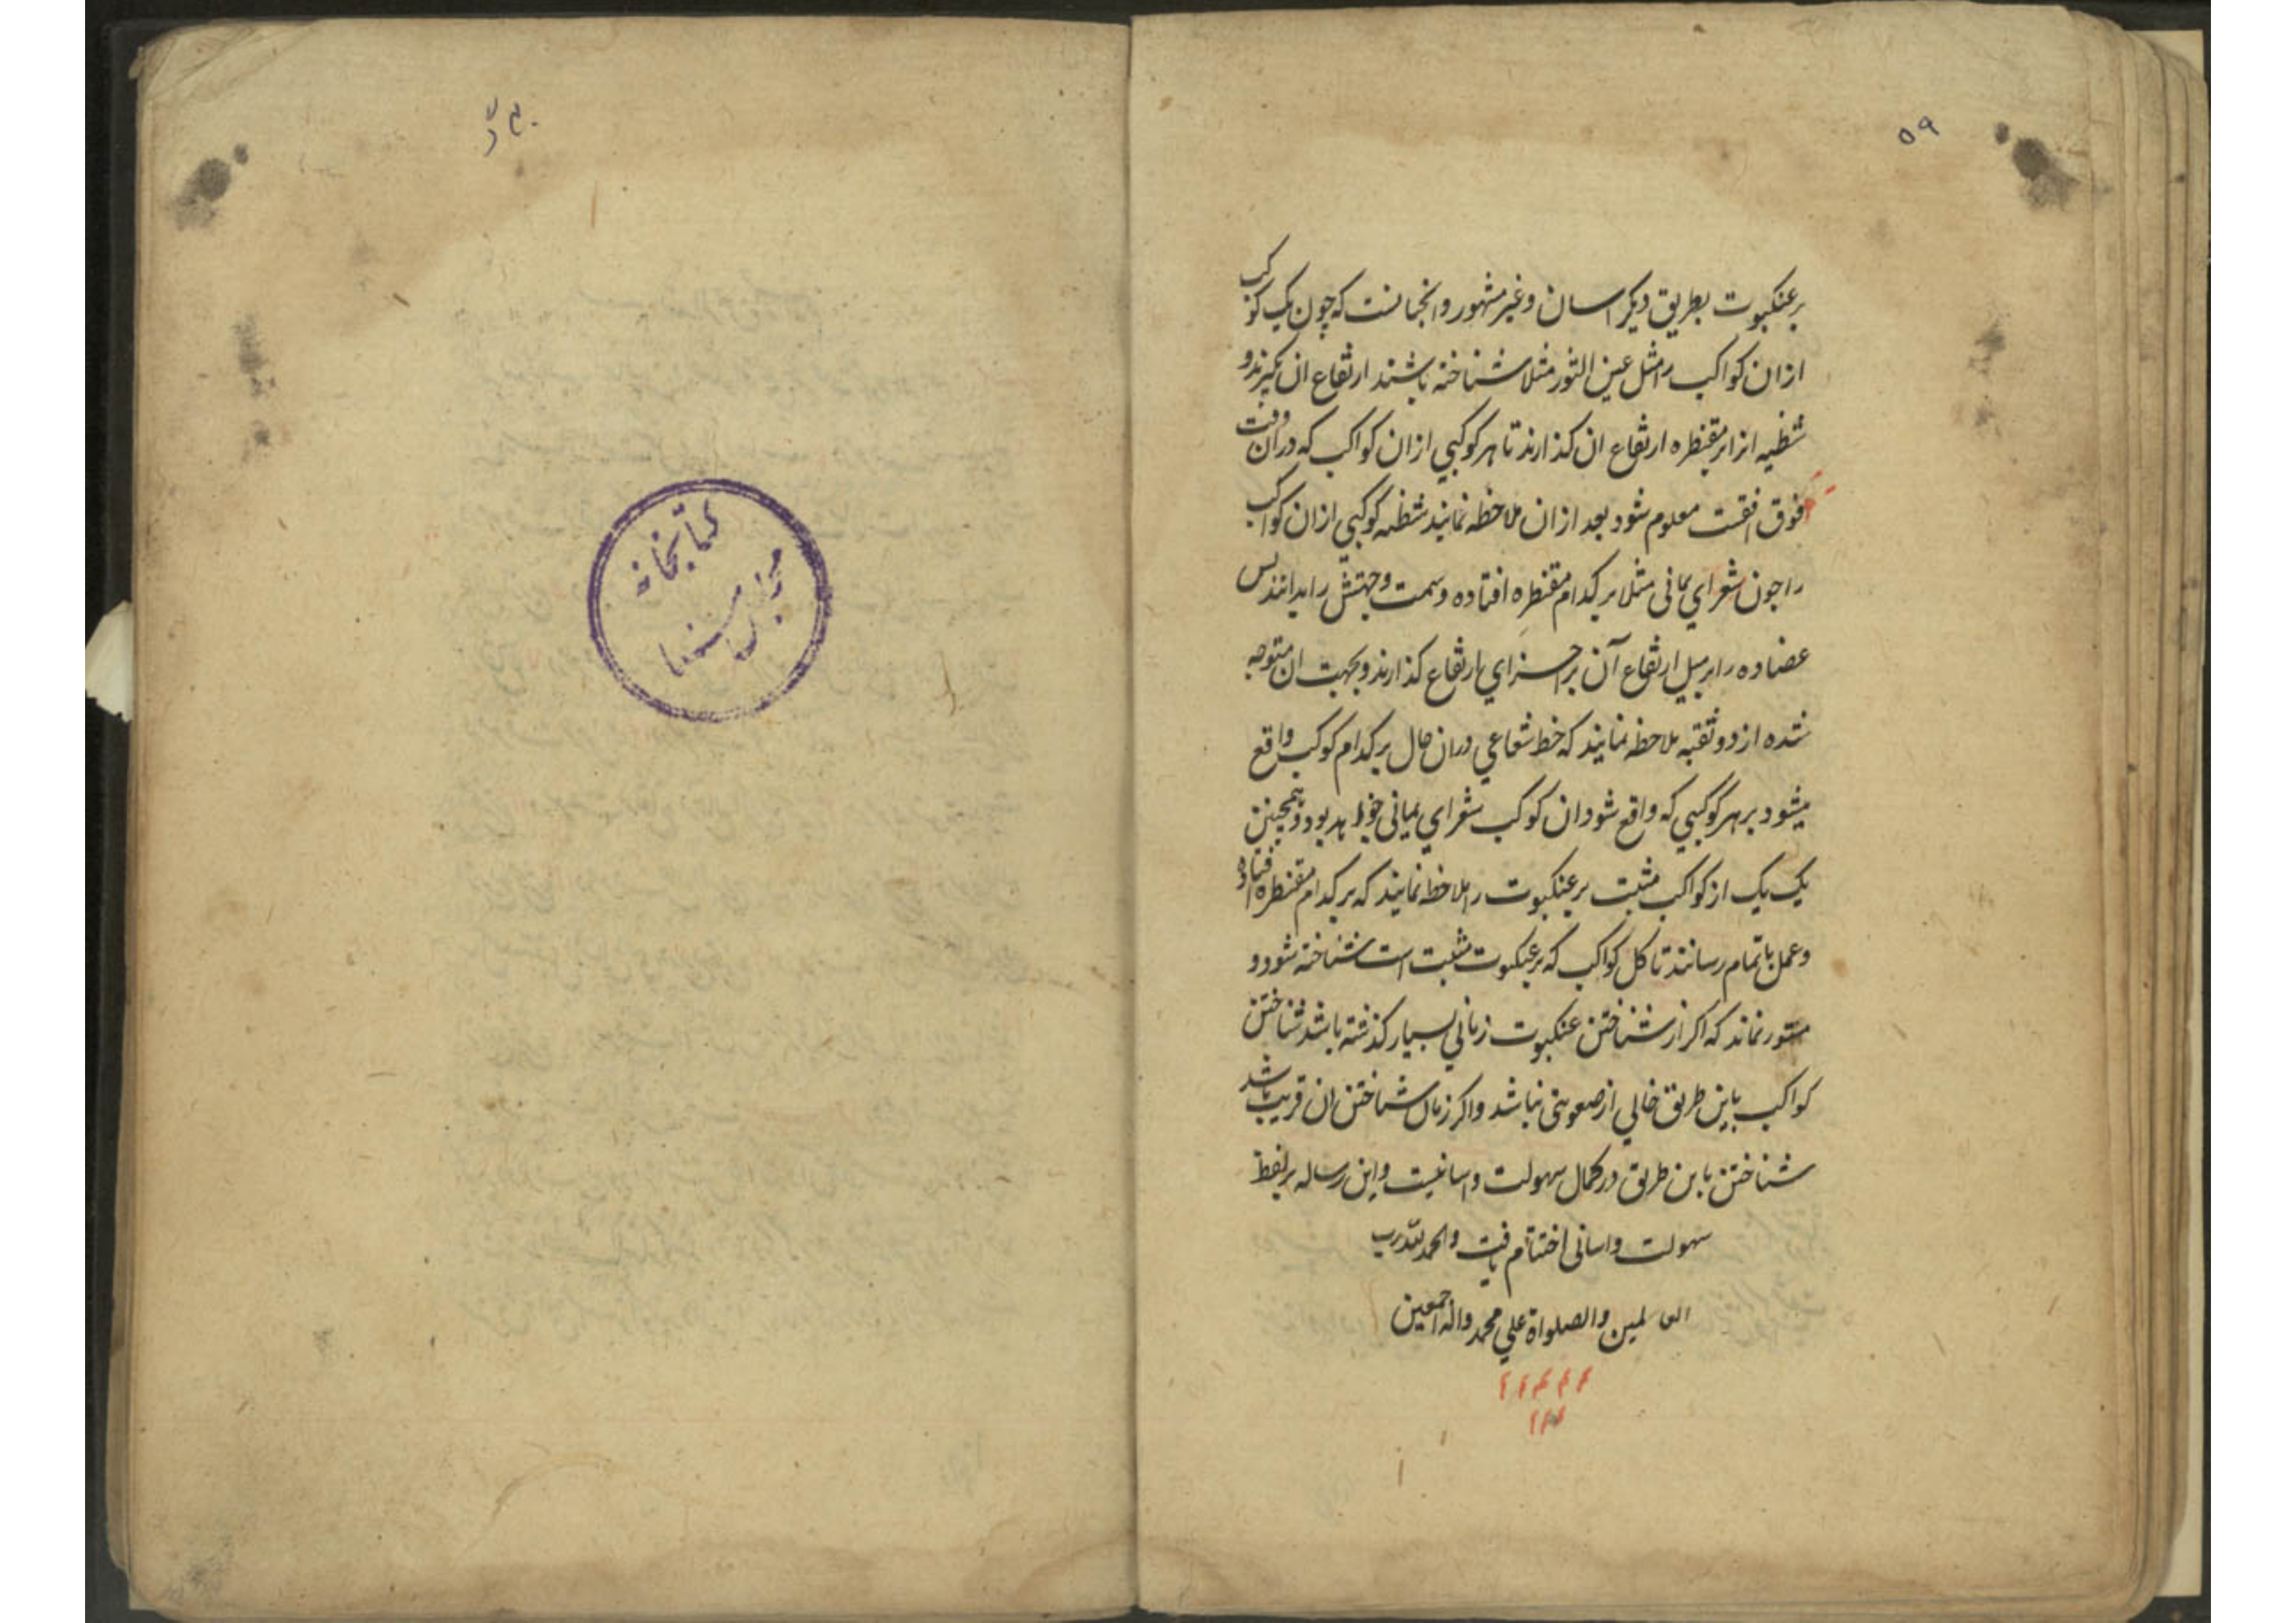 ۵۹
بر عنکبوت بطریق دیگر اسان و غیر مشهور و انجنانست که چون یک کوکب
ازان کواکب را مثل عین الثور مثلا شناخته باشند ارتفاع ان بگیرند و
شظیه انرا بر مقنطره ارتفاع ان کذارند تا هر کوکبی ازان کواکب که دران وقت
فوق افقست معلوم شود بعد ازان ملاحظه نمایند شظیه کوکبی ازان کواکب
را چون شعرای یمانی مثلا بر کدام مقنطره افتاده و سمت و جهتش را بدانند پس
عضاده را بر میل ارتفاع آن بر اجزای ارتفاع کذارند و بجهت ان متوجه
شده از دو ثقبه ملاحظه نمایند که خط شعاعی دران حال بر کدام کوکب واقع
میشود بر هر کوکبی که واقع شود ان کوکب شعرای یمانی خواهد بود و همچنین
یک یک از کواکب مثبت بر عنکبوت را ملاحظه نمایند که بر کدام مقنطره افتاده
و عمل باتمام رسانند تا کل کواکب که بر عنکبوت مثبت است شناخته شود و
مستور نماند که اکر از شناختن عنکبوت زمانی بسیار کذشته باشد شناختن
کواکب باین طریق خالی از صعوبتی نباشد و اکر زمان شناختن ان قریب باشد
شناختن باین طریق در کمال سهولت و اسانیست و این رساله بر لفظ
سهولت و اسانی اختتام یافت و الحمد لله رب
العالمین و الصلواة علی محمد و اله اجمعین
کتابخانه
مجلس سنا